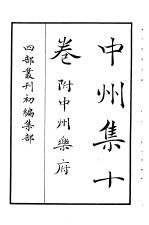 中州集十
卷附中州樂府
四部叢刊初編集部